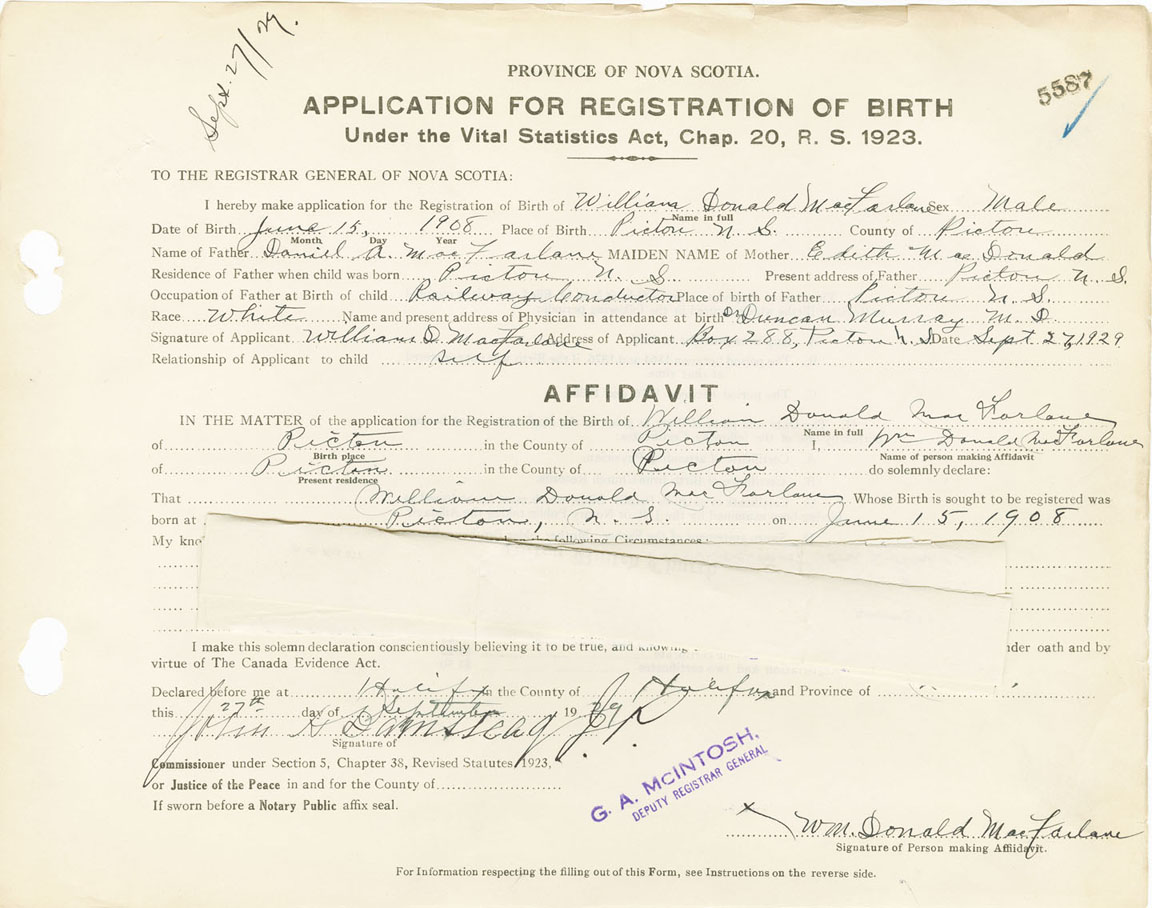 Sept. 27/29.
5587
PROVINCE OF NOVA SCOTIA.
APPLICATION FOR REGISTRATION OF BIRTH
Under the Vital Statistics Act, Chap. 20, R. S. 1923.
TO THE REGISTRAR GENERAL OF NOVA SCOTIA:
I hereby make application for the Registration of Birth of William Donald MacFarlane Sex Male
Name in full
Date of Birth June 15, 1908 Place of Birth Pictou N. S. County of Pictou
Month Day Year
Name of Father Daniel A. MacFarlane MAIDEN NAME of Mother Edith MacDonald
Residence of Father when child was born Pictou N. S. Present address of Father Pictou N. S.
Occupation of Father at Birth of child Railway Conductor Place of birth of Father Pictou N. S.
Race White Name and present address of Physician in attendance at birth Dr Duncan Murray M. D.
Signature of Applicant William D. MacFarlane Address of Applicant Box 288, Pictou N. S. Date Sept 27, 1929
Relationship of Applicant to child self
AFFIDAVIT
IN THE MATTER of the application for the Registration of the Birth of William Donald MacFarlane
Name in full
of Pictou in the County of Pictou I, Wm Donald MacFarlane
Birth place Name of person making Affidavit
of Pictou in the County of Pictou do solemnly declare:
Present residence
That William Donald MacFarlane Whose Birth is sought to be registered was
born at Pictou, N. S. on June 15, 1908
My the following Circumstances:
I make this solemn declaration conscientiously believing it to be true, and knowing under oath and by
virtue of The Canada Evidence Act.
Declared before me at Halifax in the County of Halifax and Province of
this 27th day of September 1929
John J.P.
Signature of
Commissioner under Section 5, Chapter 38, Revised Statutes 1923,
or Justice of the Peace in and for the County of
If sworn before a Notary Public affix seal.
G. A. McINTOSH,
DEPUTY REGISTRAR GENERAL
x Wm. Donald MacFarlane
Signature of Person making Affidavit.
For Information respecting the filling out of this Form, see Instructions on the reverse side.